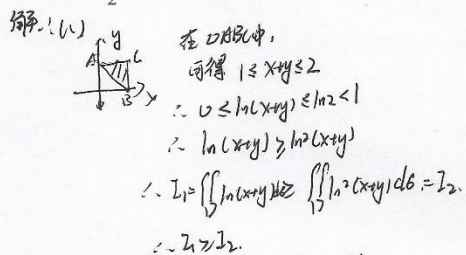 解:(1)
y
A
C
B
x
在DABC中,
可得 1≤x+y≤2
∴ 0≤ln(x+y)≤ln2<1
∴ ln(x+y)≥ln²(x+y)
∴ I₁=∬_D ln(x+y)dσ≥ ∬_D ln²(x+y)dσ=I₂.
∴ I₁≥I₂.